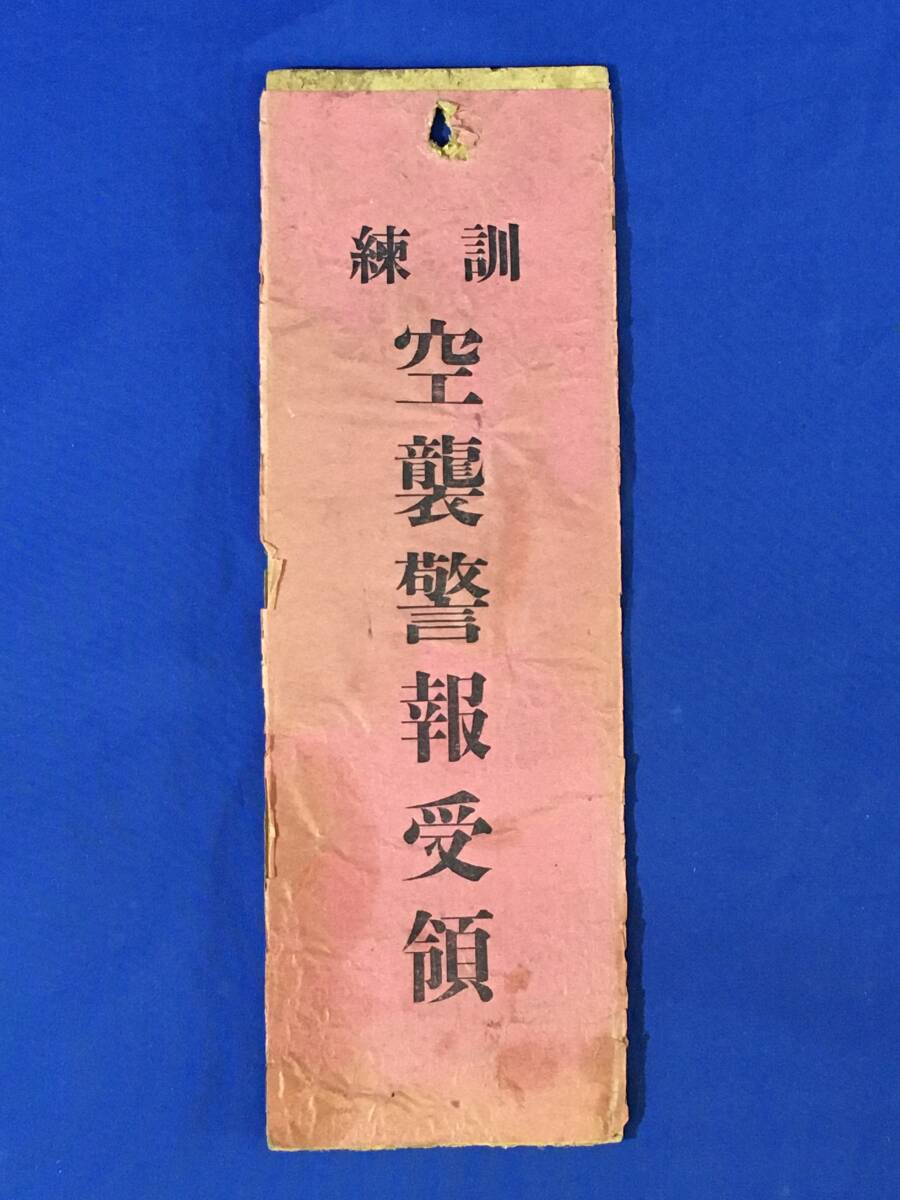 訓練
空襲警報受領